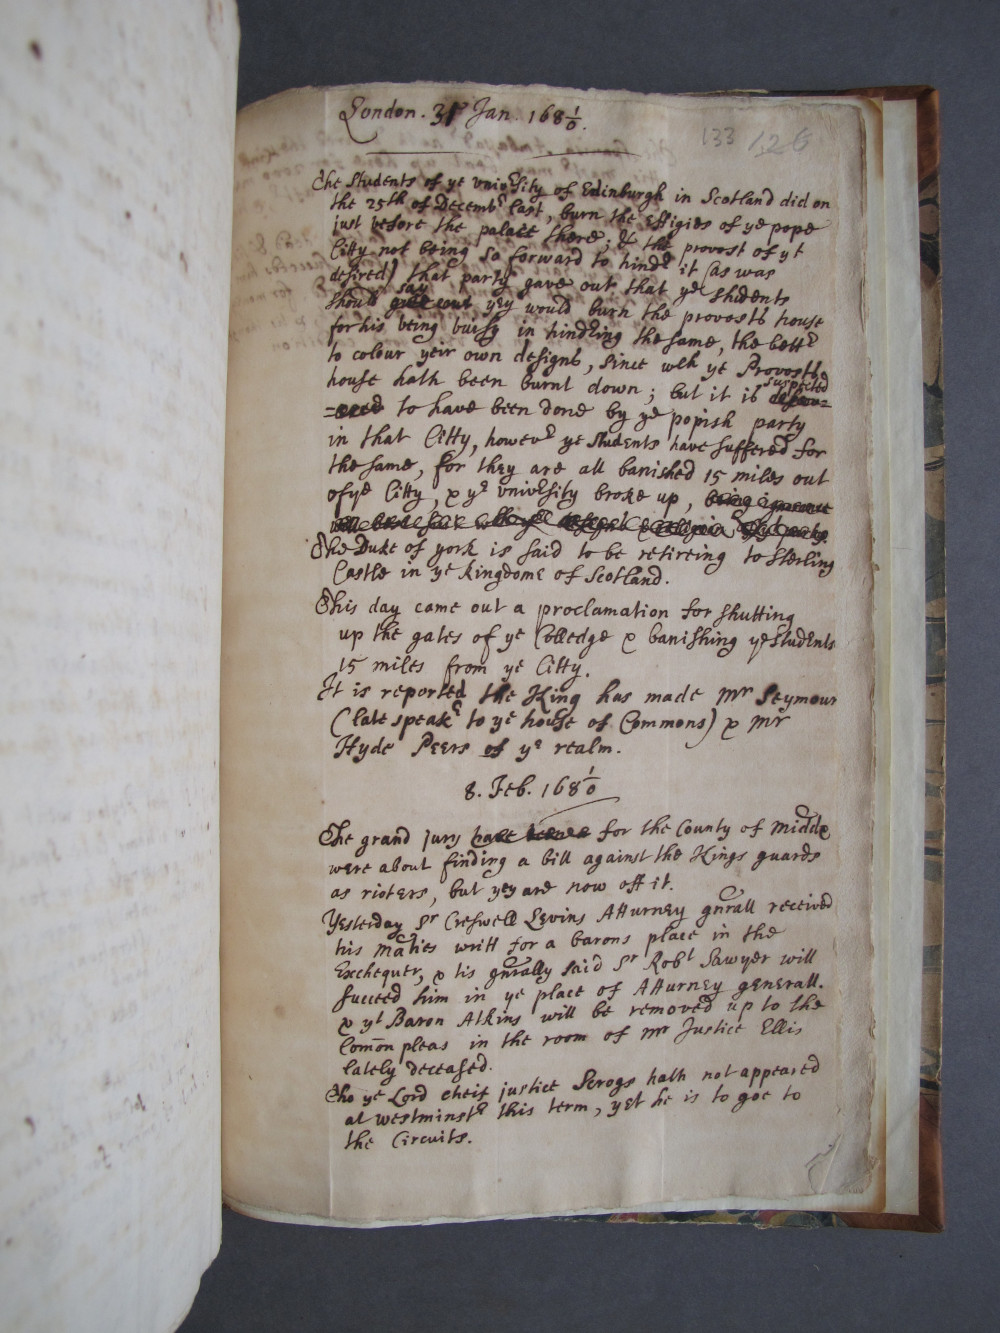 London. 31 Jan. 168 1/0.
133 126
The Students of ye university of Edinburgh in Scotland did on
the 25th of Decembr last, burn the Effigies of ye pope
just before the palace there; & the provost of yt
Citty not being so forward to hindr it (as was
desired) that party gave out that ye Students
should say yey would burn the provosts house
for his being buisy in hindring the same, the bettr
to colour yeir own designs, since wch ye Provosts
house hath been burnt down; but it is suspected
to have been done by ye popish party
in that Citty, howevr ye Students have suffered for
the same, for they are all banished 15 miles out
of ye Citty, & ye university broke up, being ignorant
The Duke of york is said to be retireing to Sterling
Castle in ye kingdome of Scotland.
This day came out a proclamation for shutting
up the gates of ye Colledge & banishing ye Students
15 miles from ye Citty.
It is reported the King has made Mr Seymour
(late speakr to ye house of Commons) & Mr
Hyde Peers of ye realm.
8. Feb. 168 1/0
The grand jury have for the County of Middx
were about finding a bill against the Kings guards
as rioters, but yey are now off it.
Yesterday Sr Creswell Levins Atturney gnrall received
his Maties writt for a barons place in the
Exchequer, & tis gnrally said Sr Robt Sawyer will
succeed him in ye place of Atturney generall.
& yt Baron Atkins will be removed up to the
Comon pleas in the room of Mr Justice Ellis
lately deceased.
Tho ye Lord cheif justice Scrogs hath not appeared
at westminstr this term, yet he is to goe to
the Circuits.